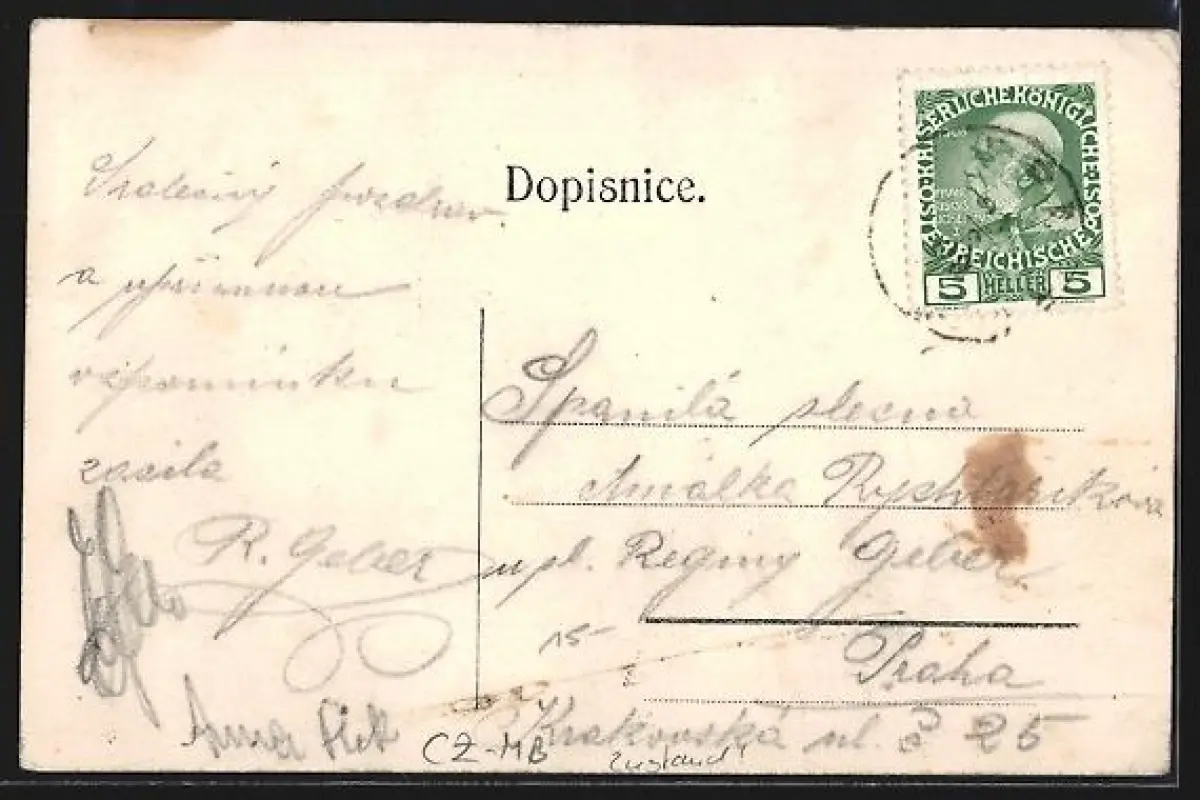 Dopisnice.
KAISERLICHE KÖNIGLICHE ÖSTERREICHISCHE
5 HELLER 5
Srdečný pozdrav
a upřímnou
vzpomínku
zasílá
R. Geber
Anna
Spanilá slečna
Amálka Rychtaříková
u pl. Reginy Geber
15-
Praha
Krakovská ul. č 25
CZ-MB
Zustand!